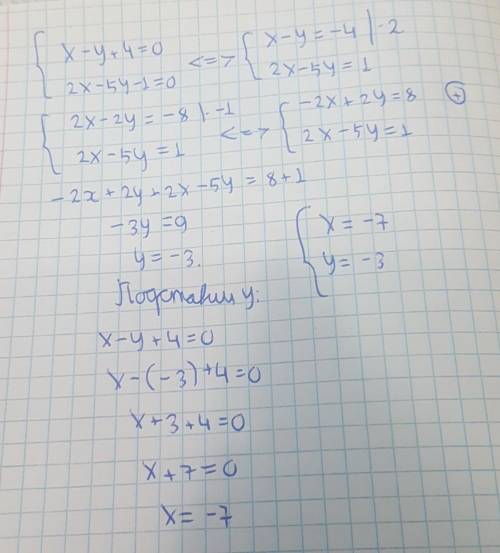 { x-y+4=0 <=> { x-y=-4 |·2
2x-5y-1=0 2x-5y=1
{ 2x-2y=-8 |·-1 <=> { -2x+2y=8 (+)
2x-5y=1 2x-5y=1
-2x+2y+2x-5y=8+1
-3y=9
y=-3.
{ x=-7
y=-3
Подставим y:
x-y+4=0
x-(-3)+4=0
x+3+4=0
x+7=0
x=-7